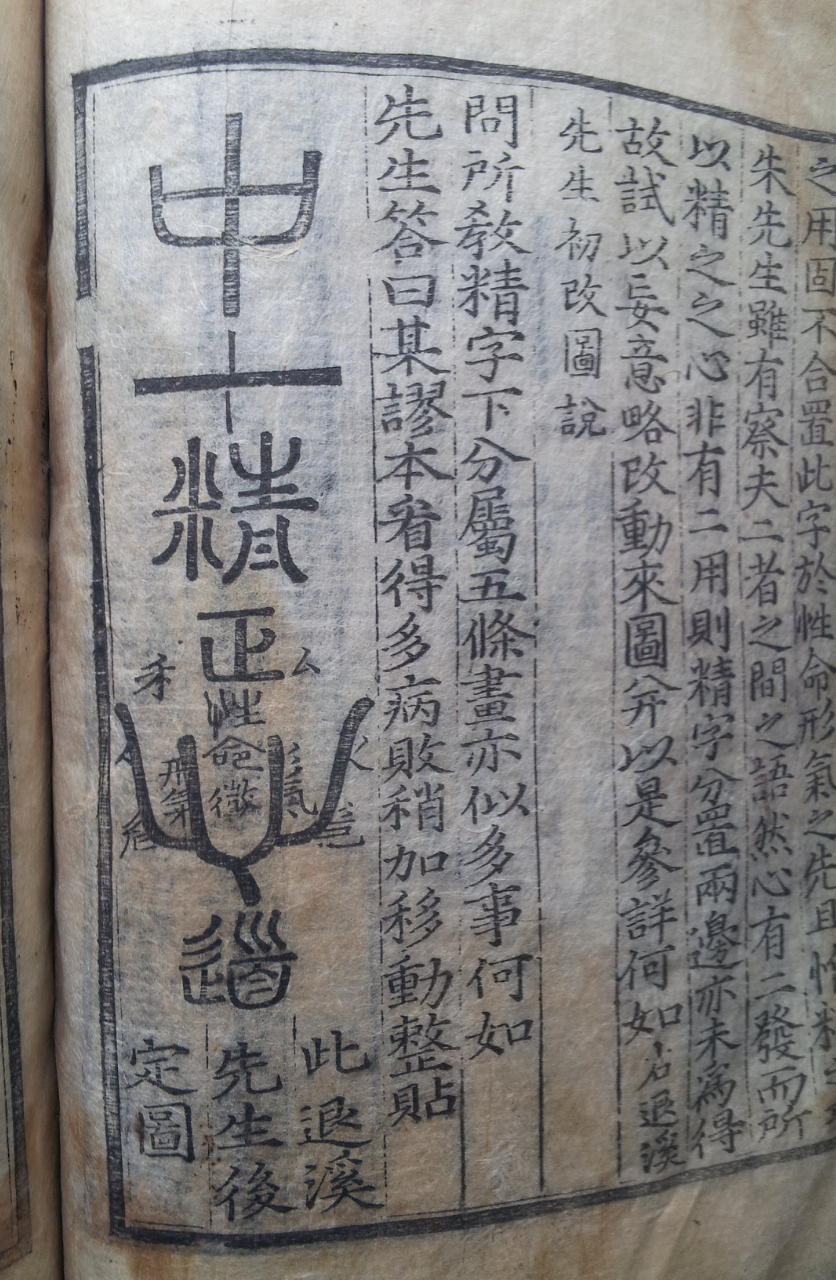 之用固不合置此字於性命形氣之先且惟精
朱先生雖有察夫二者之間之語然心有二發而所
以精之之心非有二用則精字分置兩邊亦未爲得
故試以妄意略改動來圖幷以是參詳何如 右退溪
先生初改圖說
問所教精字下分屬五條畫亦似多事何如
先生答曰某謬本看得多病敗稍加移動整貼
中
一
精
正
厶
禾
性命微
形氣
形氣
危
道
此退溪
先生後
定圖